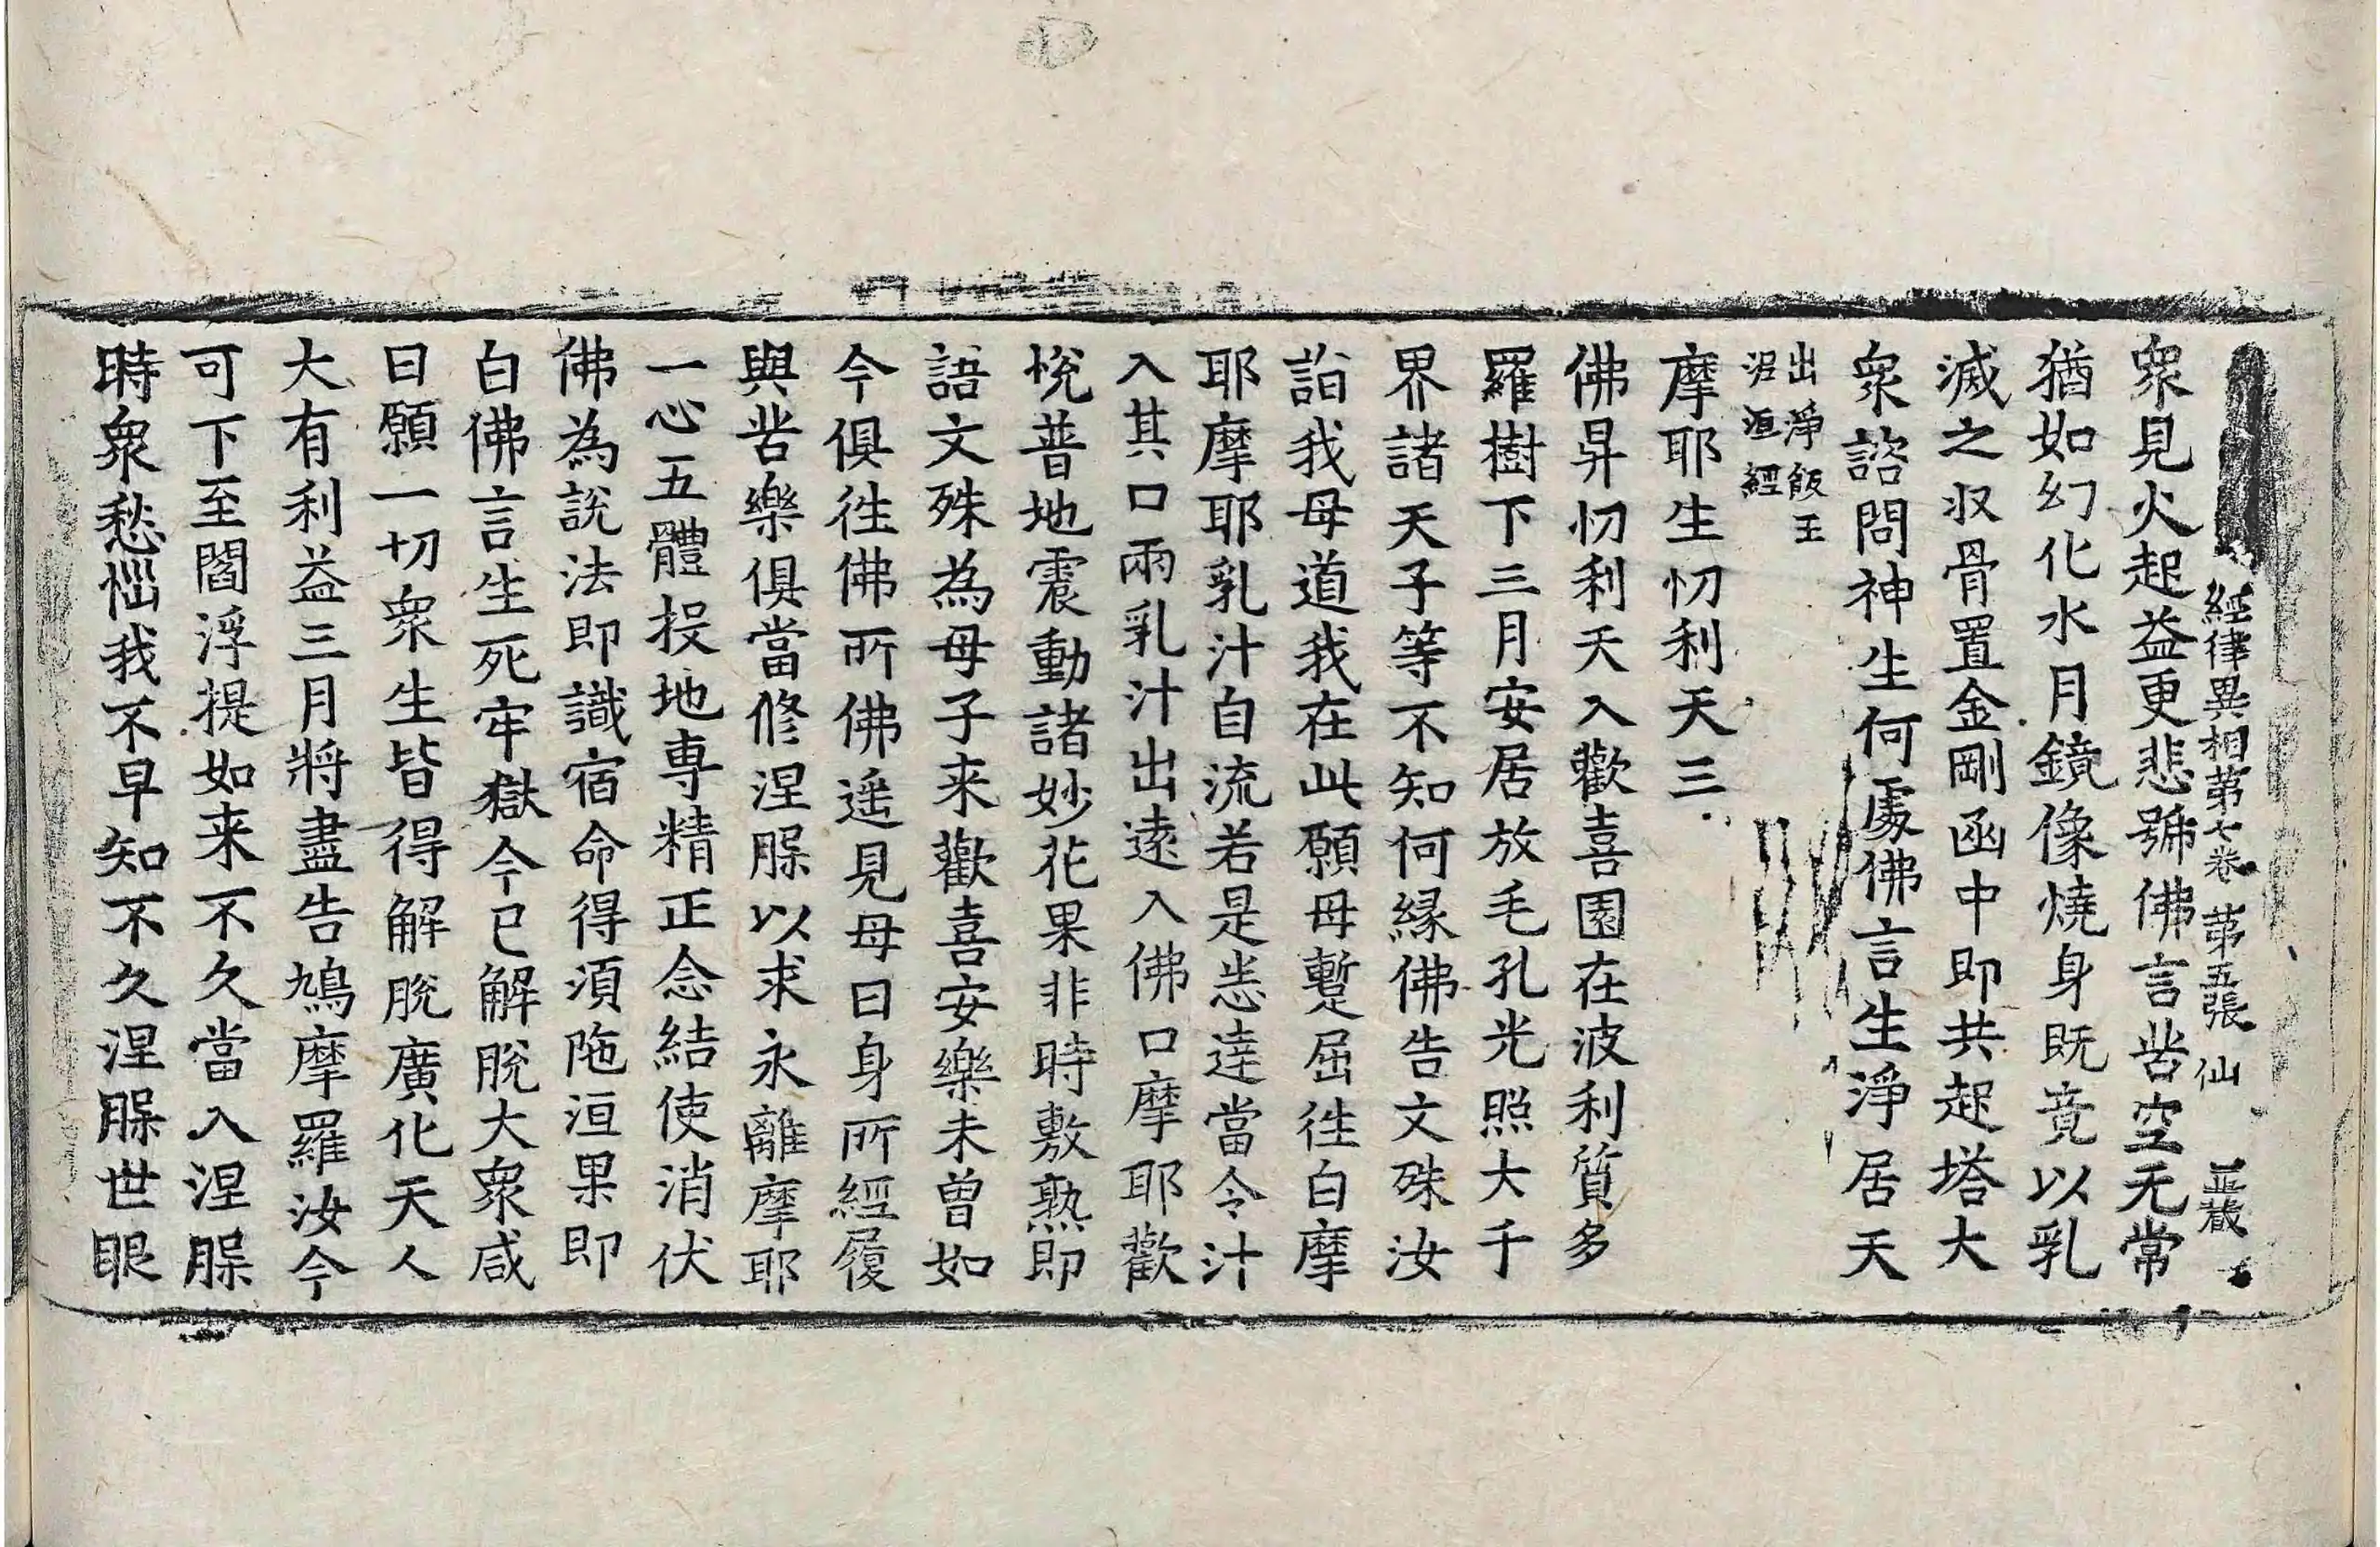 經律異相第七卷 第五張 仙
衆見火起益更悲號佛言苦空无常
猶如幻化水月鏡像燒身既竟以乳
滅之収骨置金剛函中即共起塔大
衆諮問神生何處佛言生淨居天
出淨飯王
泥洹經
摩耶生忉利天三
佛昇忉利天入歡喜園在波利質多
羅樹下三月安居放毛孔光照大千
界諸天子等不知何縁佛告文殊汝
詣我母道我在此願母蹔屈徃白摩
耶摩耶乳汁自流若是悉達當令汁
入其口兩乳汁出遠入佛口摩耶歡
悅普地震動諸妙花果非時敷熟即
語文殊為母子来歡喜安樂未曾如
今俱徃佛所佛遥見母曰身所經履
與苦樂俱當修涅槃以求永離摩耶
一心五體投地専精正念結使消伏
佛為説法即識宿命得湏陁洹果即
白佛言生死牢獄今已解脫大衆咸
曰願一切衆生皆得解脫廣化天人
大有利益三月將盡告鳩摩羅汝今
可下至閻浮提如来不久當入涅槃
時衆愁惱我不早知不久涅槃世眼